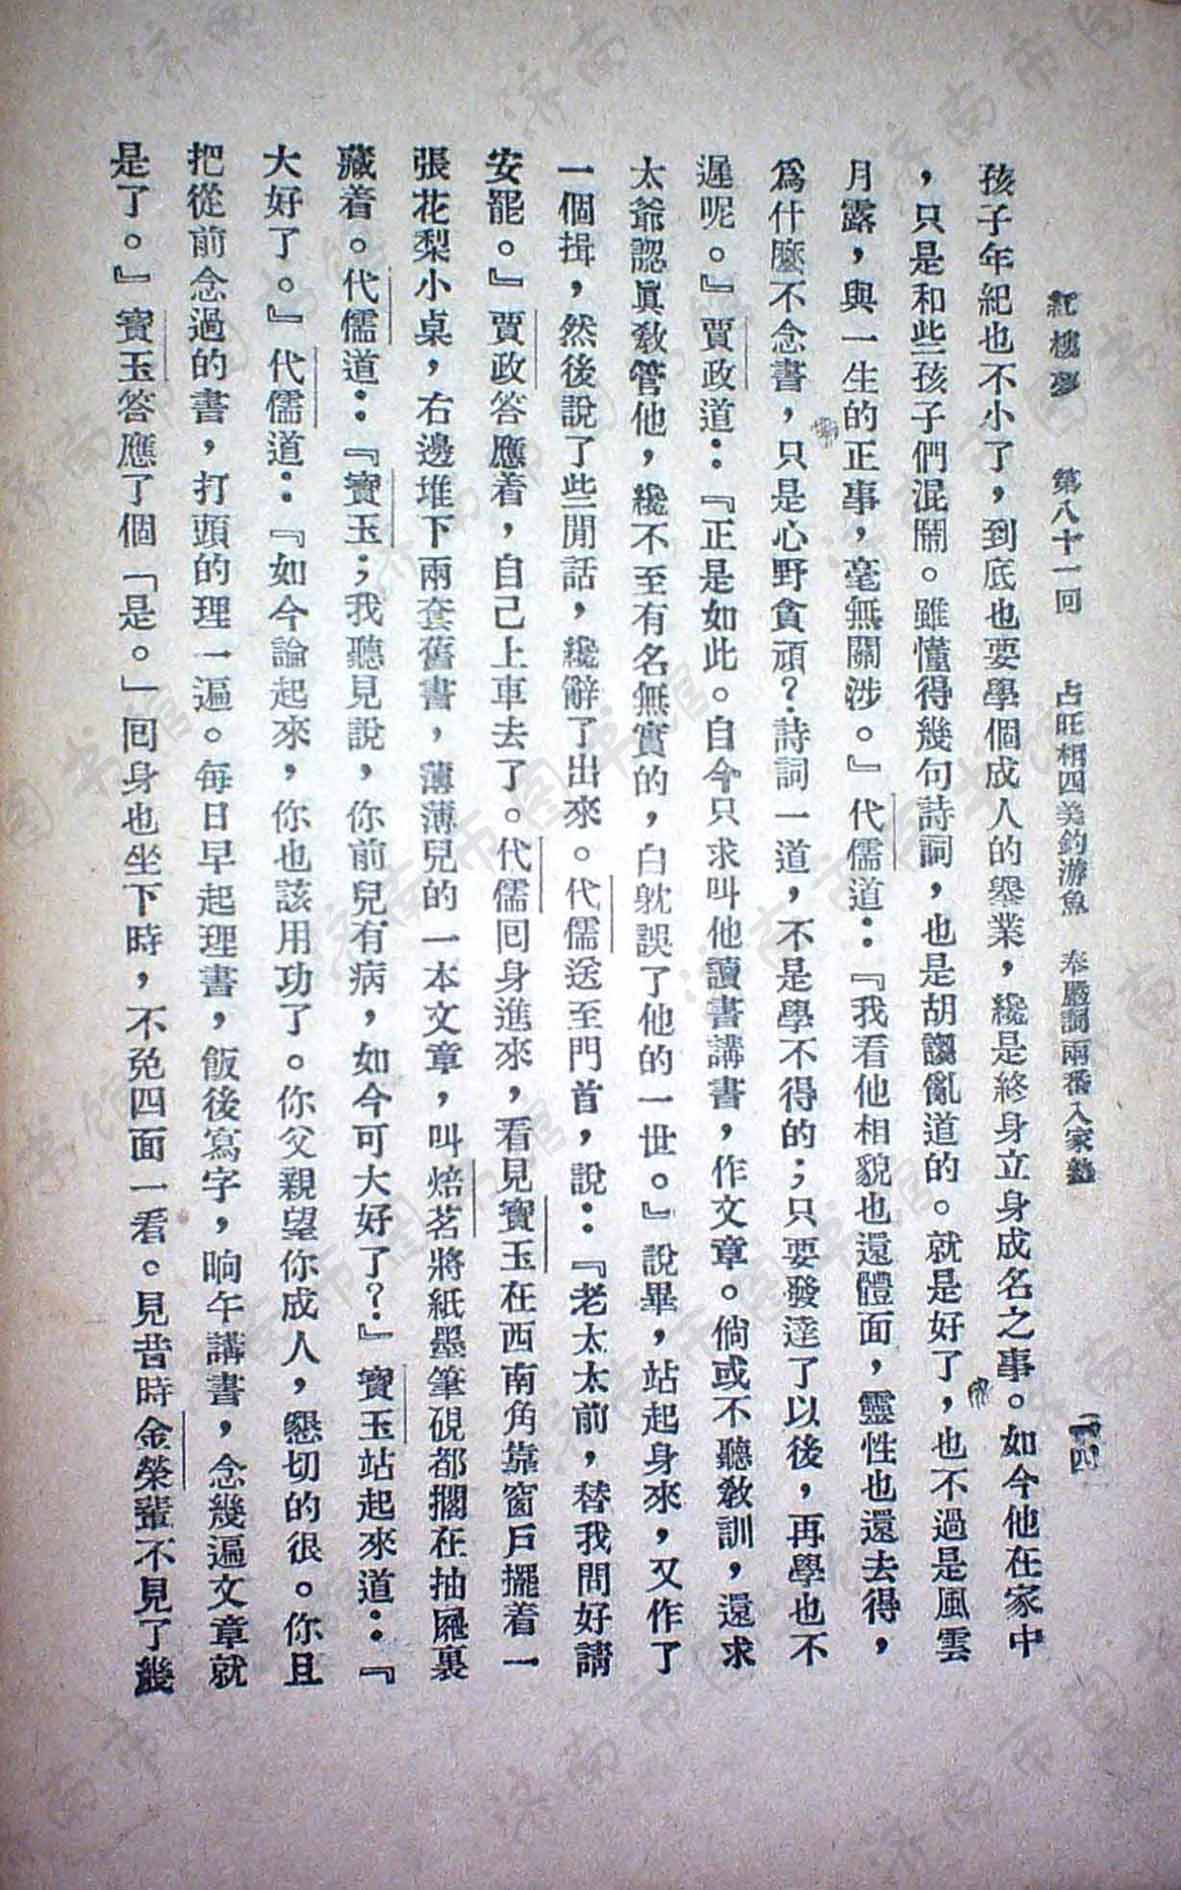 紅樓夢　第八十一回　占旺相四美釣游魚　奉嚴詞兩番入家塾　一四
孩子年紀也不小了，到底也要學個成人的舉業，纔是終身立身成名之事。如今他在家中
，只是和些孩子們混鬧。雖懂得幾句詩詞，也是胡謅亂道的。就是好了，也不過是風雲
月露，與一生的正事，毫無關涉。』代儒道：『我看他相貌也還體面，靈性也還去得，
爲什麼不念書，只是心野貪頑？詩詞一道，不是學不得的；只要發達了以後，再學也不
遲呢。』賈政道：『正是如此。自今只求叫他讀書講書，作文章。倘或不聽敎訓，還求
太爺認眞敎管他，纔不至有名無實的，白躭誤了他的一世。』說畢，站起身來，又作了
一個揖，然後說了些閒話，纔辭了出來。代儒送至門首，說：『老太太前，替我問好請
安罷。』賈政答應着，自己上車去了。代儒回身進來，看見寶玉在西南角靠窗戶擺着一
張花梨小桌，右邊堆下兩套舊書，薄薄兒的一本文章，叫焙茗將紙墨筆硯都擱在抽屜裏
藏着。代儒道：『寶玉；我聽見說，你前兒有病，如今可大好了？』寶玉站起來道：『
大好了。』代儒道：『如今論起來，你也該用功了。你父親望你成人，懇切的很。你且
把從前念過的書，打頭的理一遍。每日早起理書，飯後寫字，晌午講書，念幾遍文章就
是了。』寶玉答應了個「是。」回身也坐下時，不免四面一看。見昔時金榮輩不見了幾